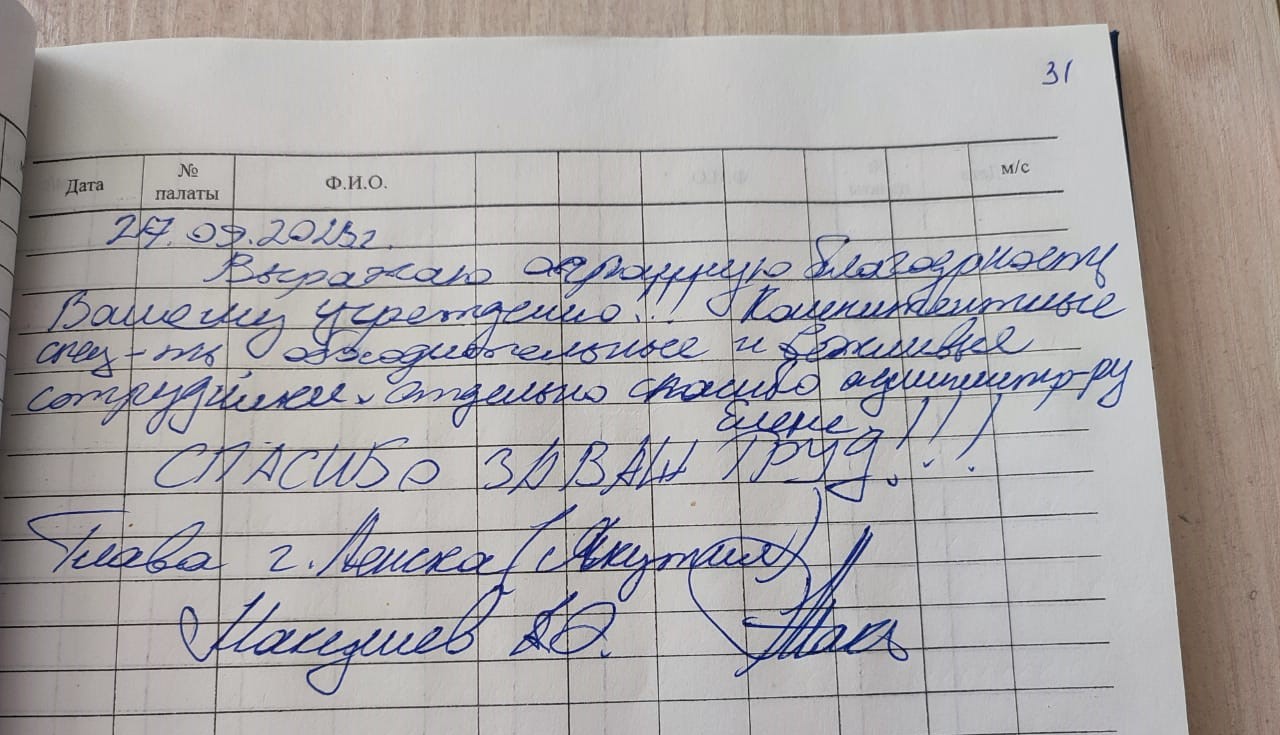 31
Дата № палаты Ф.И.О. м/с
27.09.2023г.
Выражаю огромную благодарность
Вашему учреждению!!! Компитентные
спец-ты обходительные и вежливые
сотрудники. отдельно спасибо администр-ру
Елене!!!
СПАСИБО ЗА ВАШ ТРУД!!!
Глава г. Ленска (Якутия)
Макушев А.Ю.